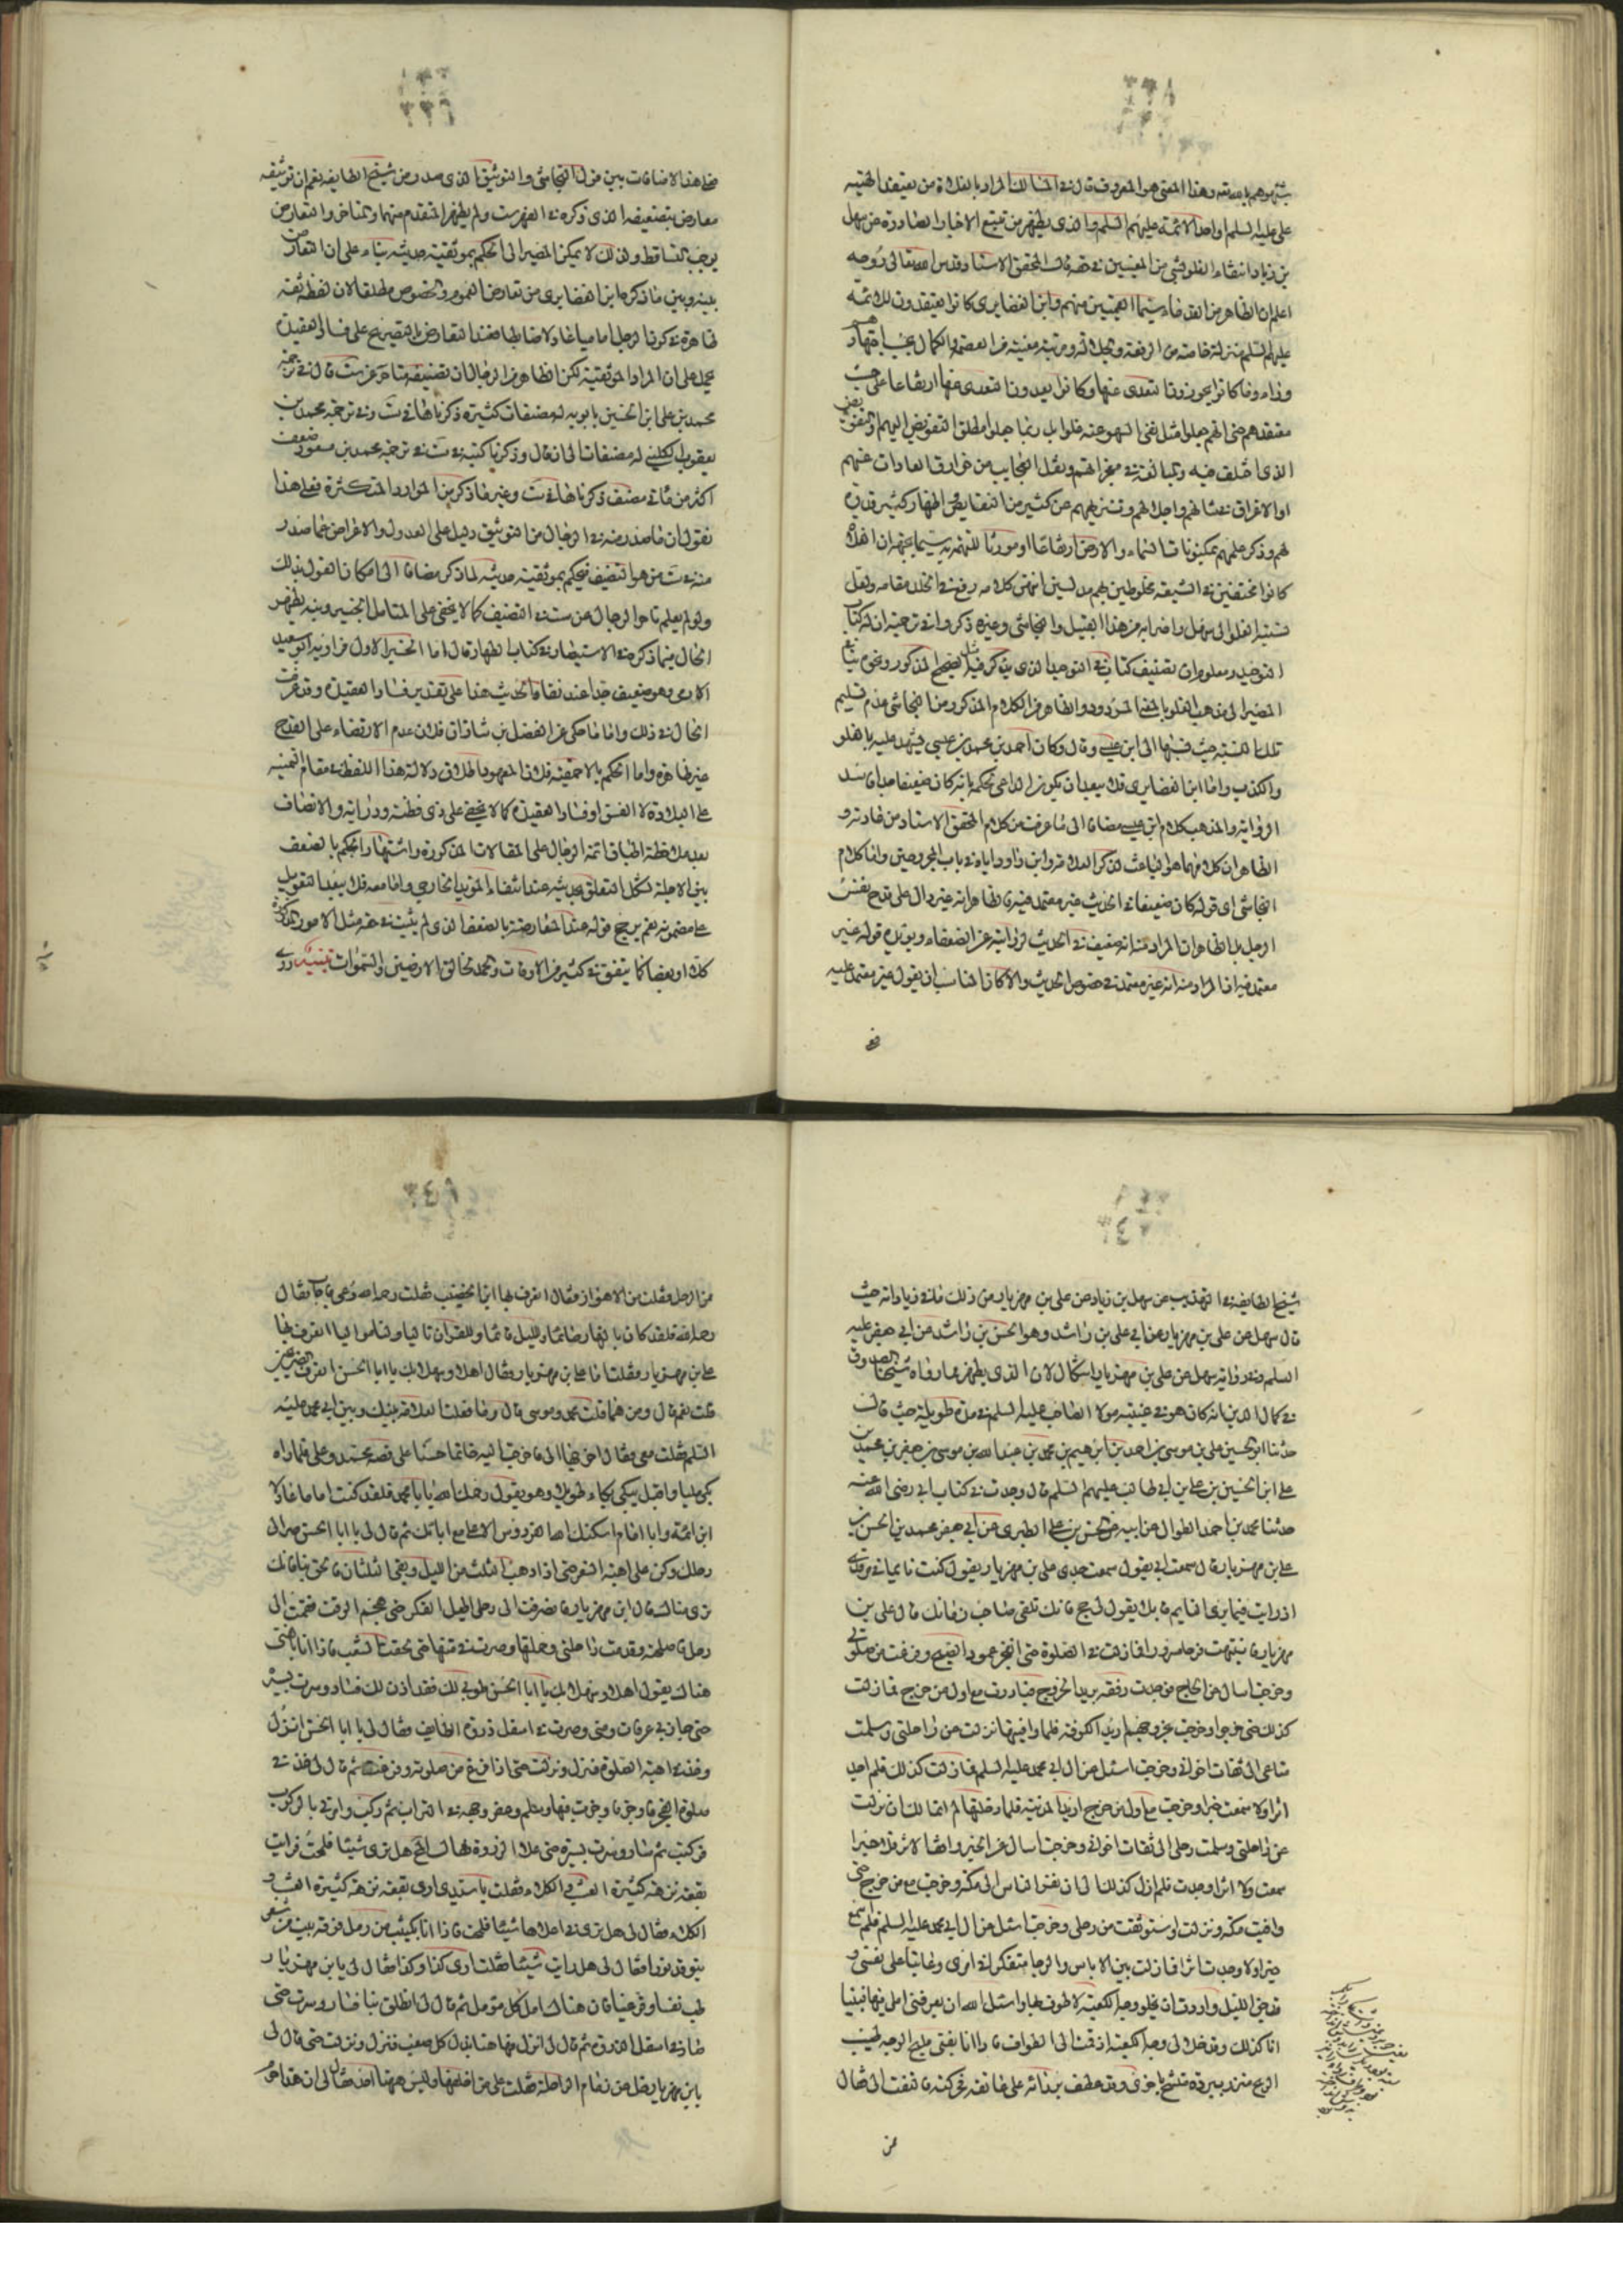 ٣٣٨
شبّهوهم بالله تعالى وهذا المعنى هو المعروف قال في المسالك المراد بالغلاة من يعتقد الهية
علي عليه السلم او احد الائمة عليهم السلم والذي يظهر من تتبع الاخبار الصادرة عن سهل
بن زياد انتفاء الغلو بشيء من المعنيين في حقه قال المحقق الاستاد قدس الله تعالى روحه
اعلم ان الظاهر من القدماء سيما القميين منهم وابن الغضايري كانوا يعتقدون للائمة
عليهم السلم منزلة خاصة من الرفعة والجلالة ومرتبة معينة من العصمة والكمال بحسب اجتهادهم
وراءه وما كانوا يجوزون التعدي عنها وكانوا يعدون التعدي عنها ارتفاعا على حسب
معتقدهم حتى انهم جعلوا مثل نفي السهو عنه غلوا بل ربما جعلوا مطلق التفويض اليهم او التفويض
الذي اختلف فيه والمبالغة في معجزاتهم ونقل العجايب من خوارق العادات عنهم
او الاغراق في شانهم واجلالهم وتنزيههم عن كثير من النقايص واظهار كثير قدرة
لهم وذكر علمهم بمكنونات السماء والارض ارتفاعا او مورثا للتهمة به سيما بجهة ان الغلاة
كانوا مختفين في الشيعة مخلوطين بهم مدلسين انتهى كلامه رفع في الخلد مقامه ولعل
نسبة الغلو الى سهل واضرابه من هذا القبيل والنجاشي وغيره ذكروا في ترجمته ان له كتاب
التوحيد ومعلوم ان تصنيف كتاب في التوحيد الذي يذكر فيه مثل الصحيح المذكور ونحوه ينافي
المصير الى مذهب الغلو بالمعنى المردود والظاهر من الكلام المذكور من النجاشي عدم تسليم
تلك النسبة حيث نسبها الى ابن عيسى وقال وكان احمد بن محمد بن عيسى يشهد عليه بالغلو
والكذب واما ابن الغضايري فلا يبعد ان يكون الداعي لحكمه بانه كان ضعيفا جدا فاسد
الرواية والمذهب كلام ابن عيسى مضافا الى ما عرفت من كلام المحقق الاستاد من عادته و
الظاهر ان كلامهما هو الباعث لذكر العلامة وابن داود اياه في باب المجروحين واما كلام
النجاشي اي قوله كان ضعيفا في الحديث غير معتمد فيه فالظاهر انه غير دال على قدح في نفس
الرجل بل الظاهر ان المراد منه انه ضعيف في الحديث لروايته عن الضعفاء ويؤيده قوله غير
معتمد فيه اذ المراد منه انه غير معتمد في خصوص الحديث والا كان المناسب ان يقول غير معتمد عليه
فعلى
٣٣٩
فعلى هذا لا منافات بين قول النجاشي والتوثيق الذي صدر من شيخ الطايفة نعم ان توثيقه
معارض بتضعيفه الذي ذكره في الفهرست ولم يظهر المتقدم منهما والمتاخر والتعارض
يوجب التساقط ولذلك لا يمكن المصير الى الحكم بموثقية حديثه بناء على ان التعارض
بينه وبين ما ذكره ابن الغضايري من تعارض العموم والخصوص مطلقا لان لفظ ثقة
ظاهرة في كون الرجل اماميا عادلا ضابطا فعند التعارض بالتصريح على فساد العقيدة
يحمل على ان المراد الموثقية لكن الظاهر من الرجال ان تصنيفه متاخر عن ست قال في ترجمة
محمد بن علي ابن الحسين بابويه له مصنفات كثيرة ذكرناها في ست وفي ترجمة محمد بن
يعقوب الكليني له مصنفات الى ان قال وذكرنا كتبه في ست في ترجمة محمد بن مسعود صنف
اكثر من مأتي مصنف ذكرناها في ست وغير ما ذكر من الموارد المتكثرة فعلى هذا
نقول ان ما صدر منه في الرجال من التوثيق دليل على العدول والاعراض عما صدر
منه في ست من هو التضعيف فيحكم بموثقية حديثه لما ذكر مضافا الى امكان القول بذلك
ولو لم يعلم تاخر الرجال عن ست في التصنيف كما لا يخفى على المتامل الخبير ومنه يظهر
الحال فيما ذكره في الاستبصار في كتاب الظهار قال اما الخبر الاول فراويه ابو سعيد
الادمي وهو ضعيف جدا عند نقاد الحديث هذا على تقدير فساد العقيدة وقد عرفت
الحال في ذلك واما ما حكي عن الفضل بن شاذان فلان عدم الارتضاء على القدح
غير ظاهرة واما الحكم بالاحمقية فلان المعهود اطلاق دلالة هذا اللفظ في مقام التمييز
على البلادة لا الفسق او فساد العقيدة كما لا يخفى على ذي فطنة ودراية والانصاف
بعد ملاحظة اطباق ائمة الرجال على المقالات المذكورة واشتهار الحكم بالضعف
بين الاجلة تشكل التعلق بحديثه عند انتفاء المؤيد الخارجي واما معه فلا يبعد التعويل
على مضمونه نعم يرجح قوله عند المعارضة بالضعف الذي لم يثبت في حقه مثل الامور المذكورة
كلا او بعضا كما يتفق في كثير من الاوقات والحمد لخالق الارضين والسموات تنبيه روى
٣٤٠
شيخ الطايفة في التهذيب عن سهل بن زياد عن علي بن مهزيار من ذلك ما في زياداته حيث
قال سهل عن علي بن مهزيار عن ابي علي بن راشد وهو الحسن بن راشد عن ابي جعفر عليه
السلم وفي رواية سهل عن علي بن مهزيار اشكال لان الذي يظهر مما رواه شيخنا الصدوق
في كمال الدين انه كان هو في غيبة مولانا الصاحب عليه السلم في مدة طويلة حيث قال
حدثنا ابو الحسين علي بن موسى بن احمد بن ابراهيم بن محمد بن عبد الله بن موسى بن جعفر بن محمد بن
علي ابن الحسين بن علي بن ابي طالب عليهم السلم قال وجدت في كتاب ابي رضي الله عنه
حدثنا محمد بن احمد الطوال عن ابيه عن الحسن بن علي الطبري عن ابي جعفر محمد بن الحسن بن
علي بن مهزيار قال سمعت ابي يقول سمعت جدي علي بن مهزيار يقول كنت نايما في مرقدي
اذ رايت فيما يرى النايم قائلا يقول لي حج فانك تلقى صاحب زمانك قال علي بن
مهزيار فانتبهت فرحا مسرورا فما زلت في الصلوة حتى انفجر عمود الصبح وفرغت من صلوتي
وخرجت اسال عن الحاج فوجدت رفقة يريد الخروج فبادرت مع اول من خرج فما زلت
كذلك حتى خرجوا وخرجت بخروجهم اريد الكوفة فلما وافيتها نزلت عن راحلتي وسلمت
متاعي الى ثقات اخواني وخرجت اسئل عن ال ابي محمد عليه السلم فما زلت كذلك فلم اجد
اثرا ولا سمعت خبرا وخرجت مع اول من خرج اريد المدينة فلما دخلتها لم اتمالك ان نزلت
عن راحلتي وسلمت رحلي الى ثقات اخواني وخرجت اسال عن الخبر واقفوا الاثر فلا خبرا
سمعت ولا اثرا وجدت فلم ازل كذلك الى ان نفر الناس الى مكة وخرجت مع من خرج حتى
وافيت مكة ونزلت واستوثقت من رحلي وخرجت اسئل عن ال ابي محمد عليه السلم فلم اسمع
خبرا ولا وجدت اثرا فما زلت بين الاياس والرجاء متفكرا في امري وعاتبا على نفسي و
قد جن الليل واردت ان يخلو وجه الكعبة لاطوف بها واسئل الله ان يعرفني املي فيها فبينا
انا كذلك وقد خلا لي وجه الكعبة اذ قمت الى الطواف فاذا انا بفتى مليح الوجه طيب
الريح متزر ببردة متشح باخرى وقد عطف بردائه على عاتقه فحركته فالتفت الي فقال
ممن
٣٤١
من الرجل فقلت من الاهواز فقال اتعرف بها ابن الخضيب فقلت رحمه الله دعي فاجاب فقال
رحمه الله فلقد كان بالنهار صائما وبالليل قائما وللقران تاليا ولنا مواليا اتعرف بها
علي بن مهزيار فقلت انا علي بن مهزيار فقال اهلا وسهلا بك يا ابا الحسن اتعرف الضريحين
قلت نعم قال ومن هما قلت محمد وموسى قال وما فعلت العلامة بينك وبين ابي محمد عليه
السلم فقلت معي فقال اخرجها الي فاخرجت اليه خاتما حسنا على فصه محمد وعلي فلما راه
بكى مليا واقبل يبكي بكاء طويلا وهو يقول رحمك الله يا ابا محمد فلقد كنت اماما عادلا
ابن ائمة وابا امام اسكنك الله الفردوس الاعلى مع ابائك ثم قال لي يا ابا الحسن صر الى
رحلك وكن على اهبة السفر حتى اذا ذهب الثلث من الليل وبقي الثلثان فالحق بنا فانك
ترى مناك قال ابن مهزيار فانصرفت الى رحلي اطيل الفكر حتى هجم الوقت فقمت الى
رحلي فاصلحته وقدمت راحلتي وحملتها وصرت في متنها حتى لحقت الشعب فاذا انا بالفتى
هناك يقول اهلا وسهلا بك يا ابا الحسن طوبى لك فقد اذن لك فسار وسرت بسيره
حتى جاز بي عرفات ومنى وصرت في اسفل ذروة الطايف فقال لي يا ابا الحسن انزل
وخذ في اهبة الصلوة فنزل ونزلت حتى اذا فرغ من صلوته وفرغت ثم قال لي خذ في
صلوة الفجر فاوجز فاوجزت فيها وسلم وعفر وجهه في التراب ثم ركب وامرني بالركوب
فركبت ثم سار وسرت بسيره حتى علا الذروة فقال المح هل ترى شيئا فلمحت فرايت
بقعة نزهة كثيرة العشب والكلاء فقلت يا سيدي ارى بقعة نزهة كثيرة العشب و
الكلاء فقال لي هل ترى في اعلاها شيئا فلمحت فاذا انا بكثيب من رمل فوقه بيت من شعر
يتوقد نورا فقال لي هل رايت شيئا فقلت ارى كذا وكذا فقال لي يا بن مهزيار
طب نفسا وقر عينا فان هناك امل كل مؤمل ثم قال لي انطلق بنا فسار وسرت حتى
صار في اسفل الذروة ثم قال لي انزل فههنا يذل كل صعب فنزل ونزلت حتى قال لي
يا بن مهزيار خل عن زمام الراحلة فقلت على من اخلفها وليس ههنا احد فقال لي ان هذا حرم